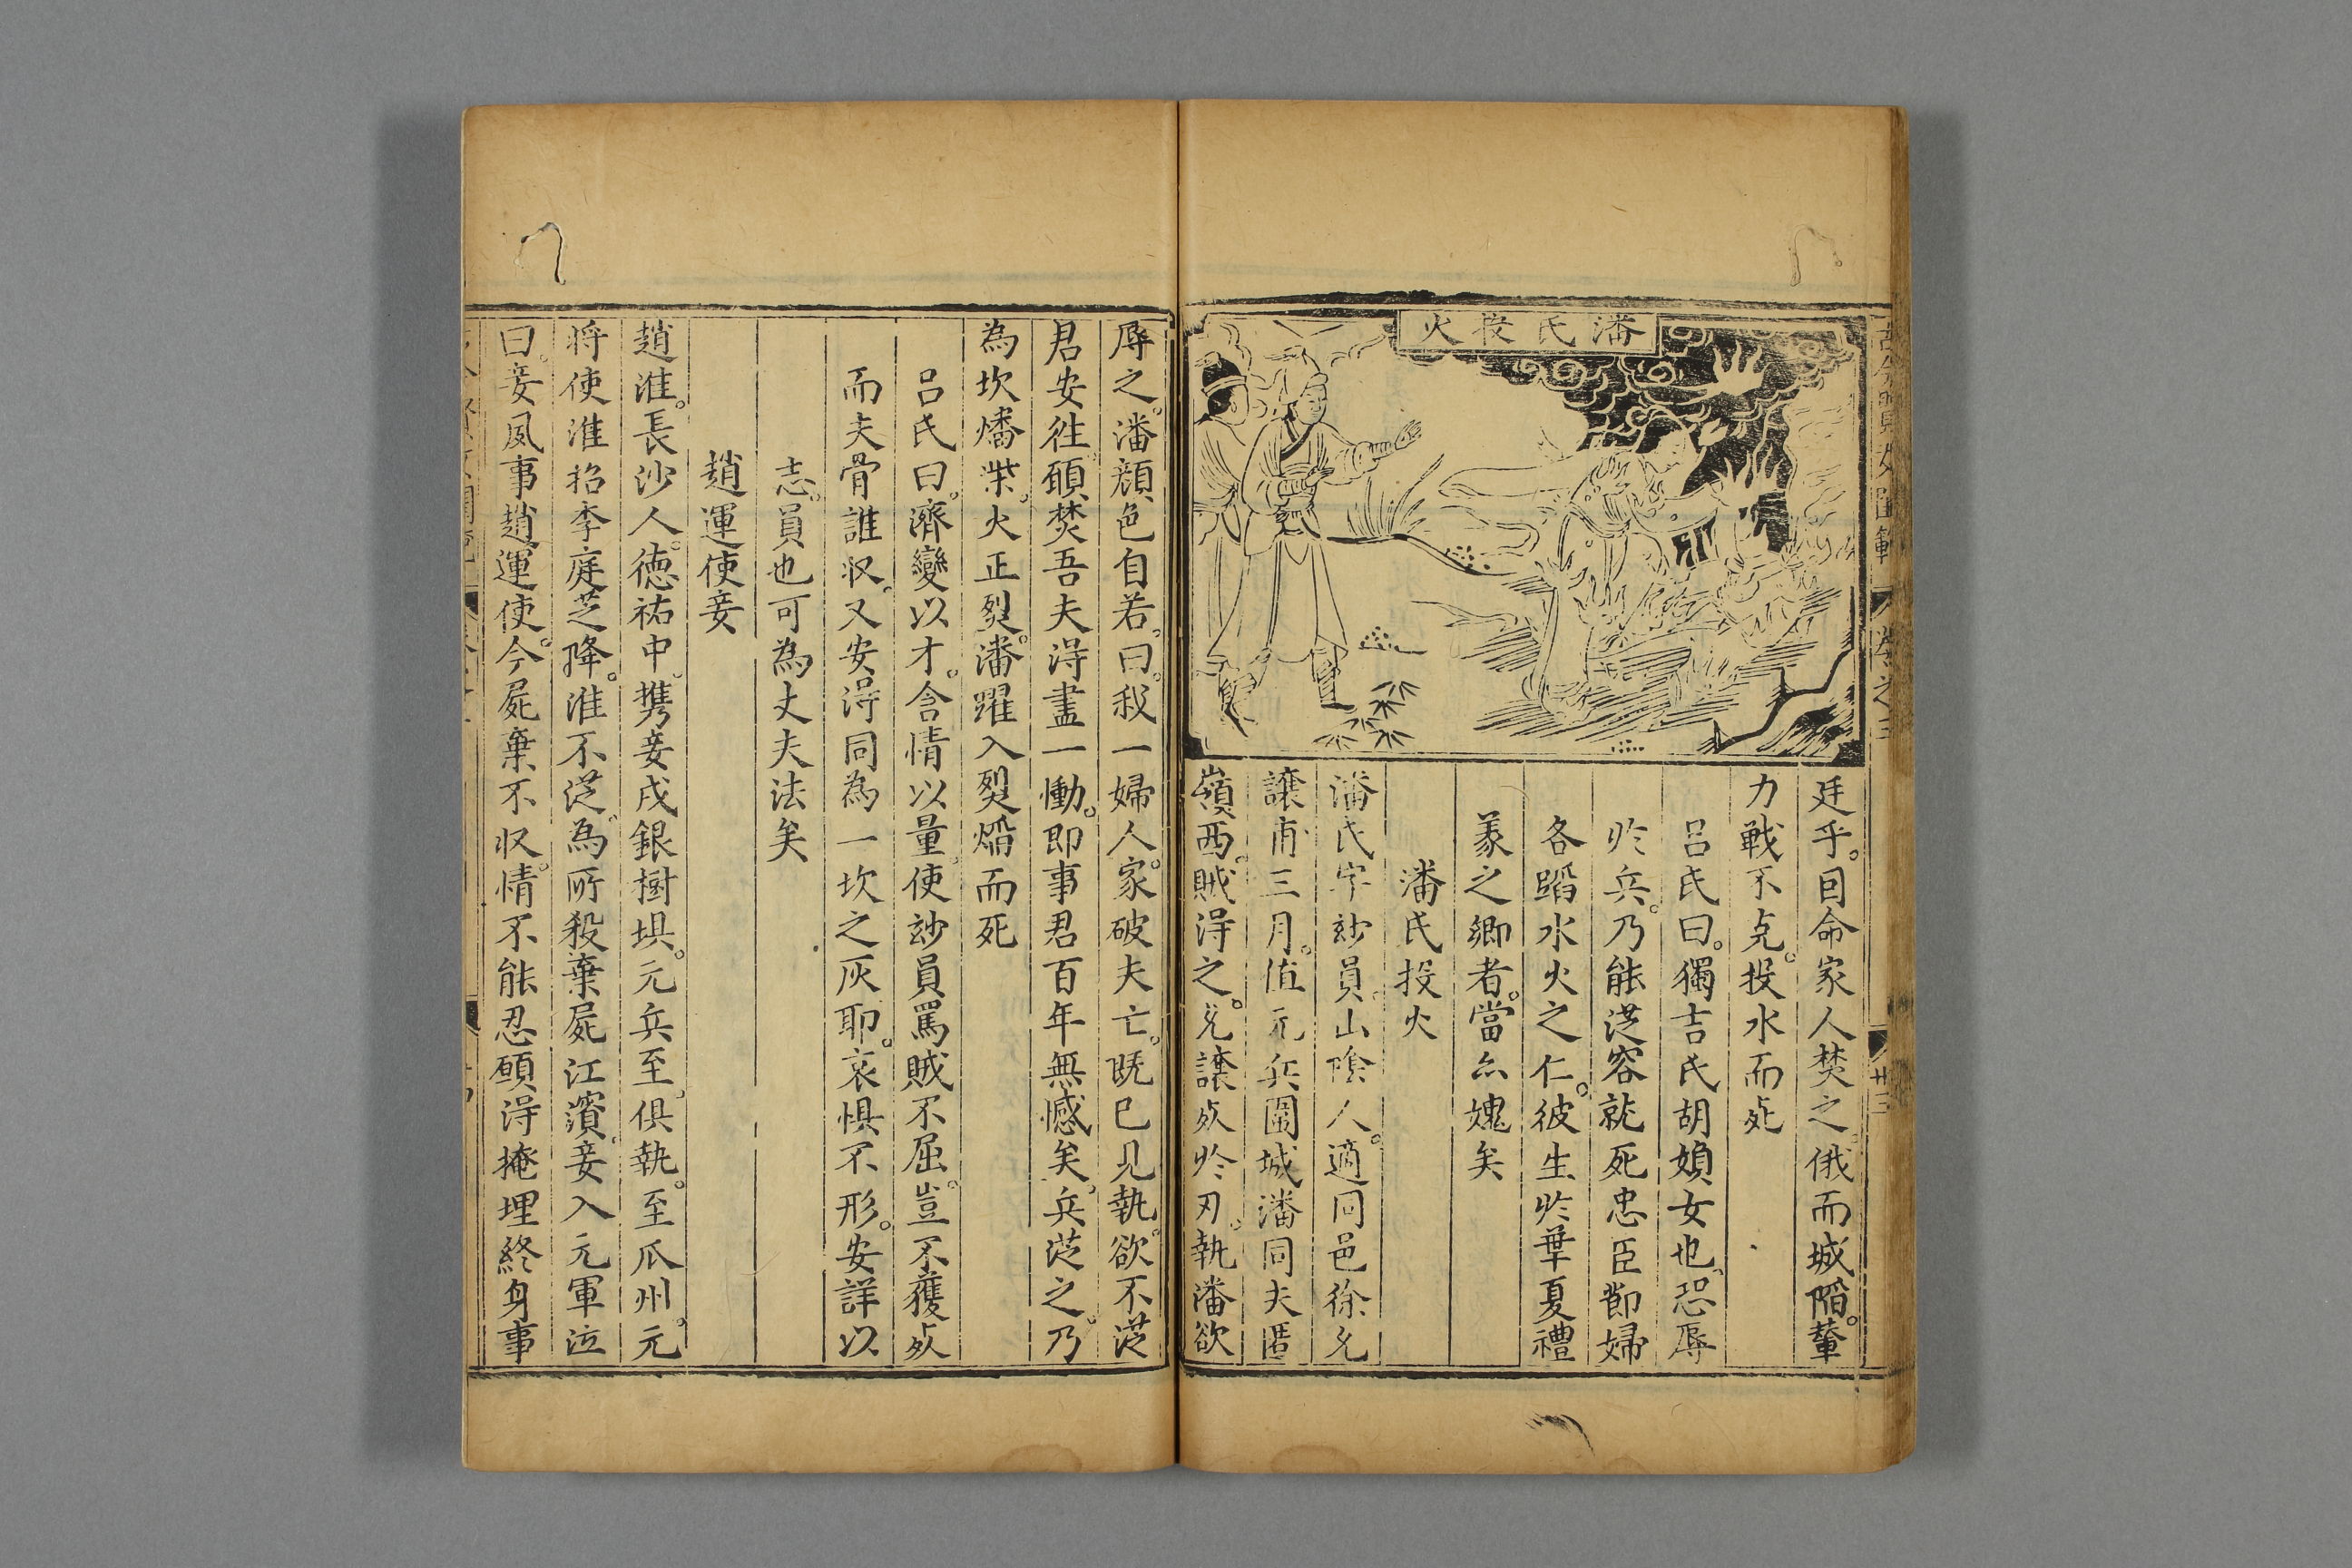 潘氏投火
廷乎。因命家人焚之。俄而城陷。輦
力戰不克。投水而死
呂氏曰。獨吉氏胡媍女也。恐辱
於兵。乃能從容就死忠臣節婦
各蹈水火之仁。彼生於華夏禮
義之鄉者。當亦媿矣
潘氏投火
潘氏字妙員。山陰人。適同邑徐允
讓甫三月。值元兵圍城潘同夫匿
嶺西。賊得之。允讓死於刃。執潘欲
辱之。潘顏色自若。曰。我一婦人。家破夫亡。既已見執。欲不從
君安徃。願焚吾夫得盡一慟。即事君百年無憾矣。兵從之。乃
為坎燔柴。火正烈。潘躍入烈焰而死
呂氏曰。濟變以才。含情以量。使妙員罵賊不屈。豈不獲死
而夫骨誰収。又安得同為一坎之灰耶。哀惧不形。安詳以
志。員也可為丈夫法矣
趙運使妾
趙淮。長沙人。德祐中。携妾戌銀樹埧。元兵至。俱執。至瓜州。元
將使淮招李庭芝降。淮不從。為所殺棄屍江濱。妾入元軍泣
曰。妾夙事趙運使。今屍棄不収。情不能忍願得掩埋終身事